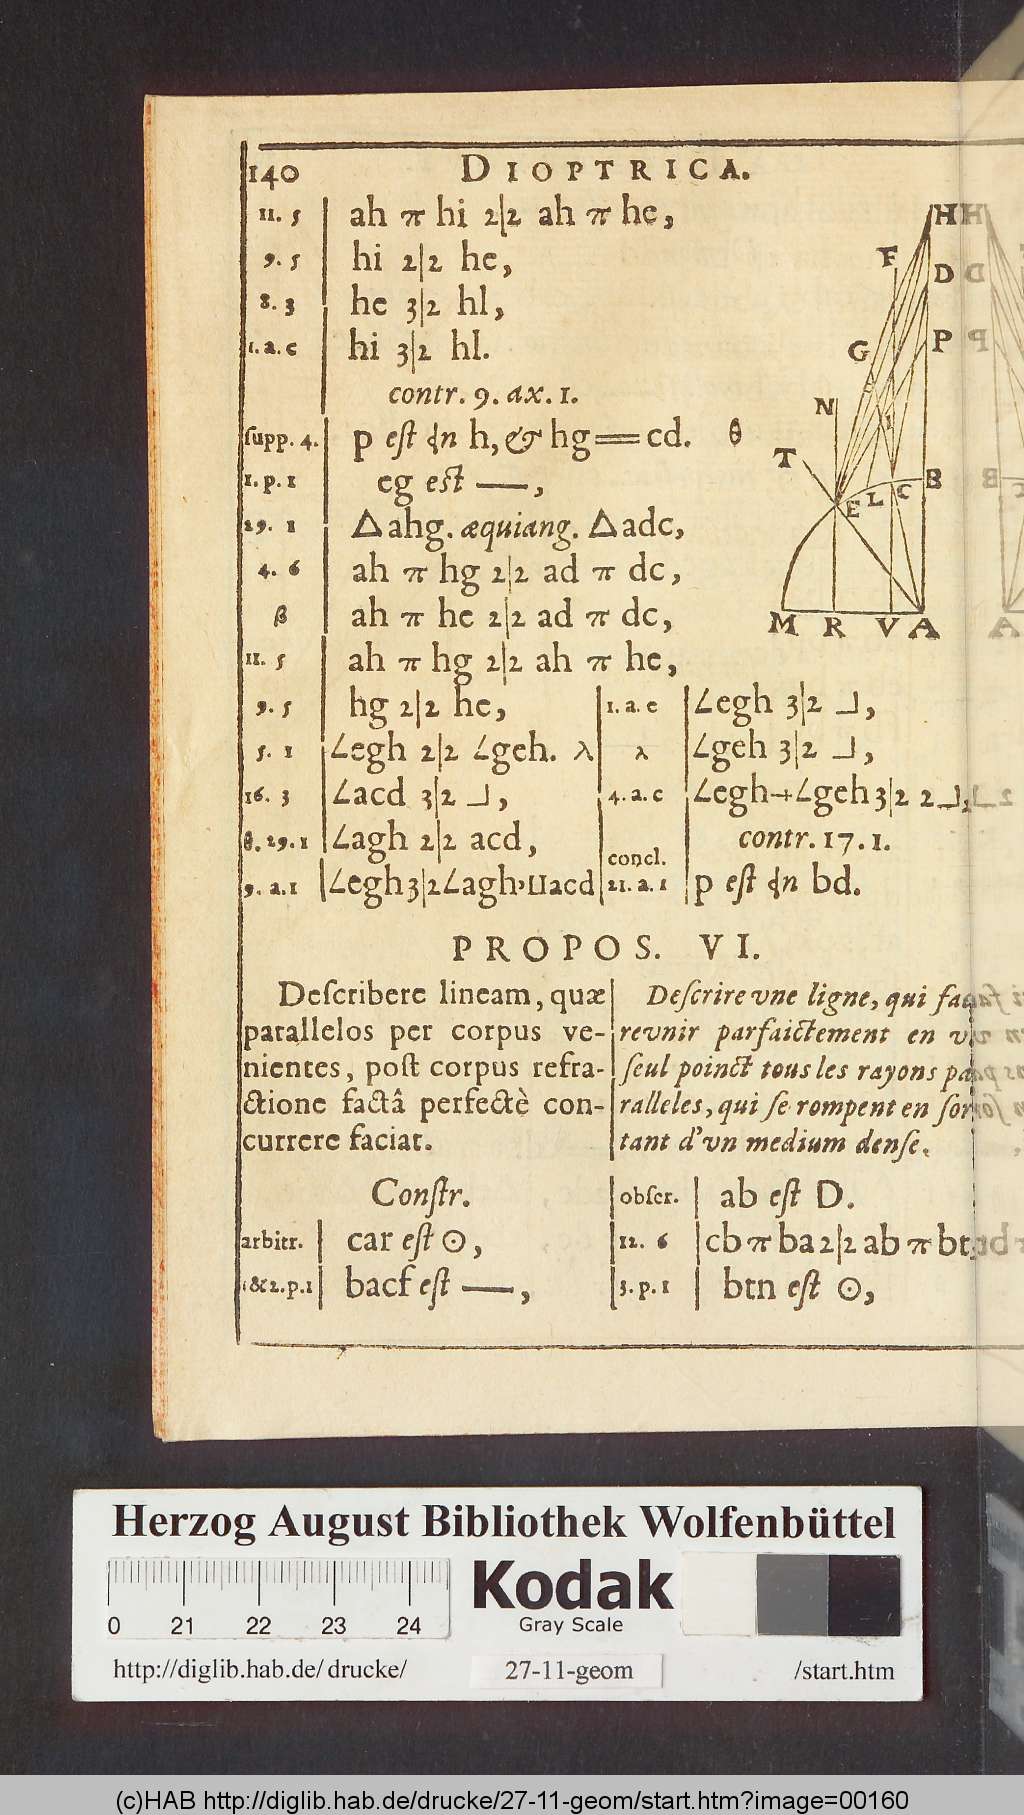 140 DIOPTRICA.
11. 5 | ah π hi 2|2 ah π he,
9. 5 | hi 2|2 he,
8. 3 | he 3|2 hl,
1. a. c | hi 3|2 hl.
contr. 9. ax. 1.
ſupp. 4. | p eſt h, & hg = cd. θ
1. p. 1 | eg eſt —,
29. 1 | △ahg. æquiang. △adc,
4. 6 | ah π hg 2|2 ad π dc,
β | ah π he 2|2 ad π dc,
11. 5 | ah π hg 2|2 ah π he,
9. 5 | hg 2|2 he,
5. 1 | ∠egh 2|2 ∠geh. λ
16. 3 | ∠acd 3|2 ⅃,
θ. 29. 1 | ∠agh 2|2 acd,
9. a. 1 | ∠egh 3|2 ∠agh, acd
1. a. e | ∠egh 3|2 ⅃,
λ | ∠geh 3|2 ⅃,
4. a. c | ∠egh + ∠geh 3|2 2⅃,
contr. 17. 1.
concl.
21. a. 1 | p eſt bd.
H
F
D
P
G
N
I
T
B
E L C
M R V A
PROPOS. VI.
Deſcribere lineam, quæ
parallelos per corpus ve-
nientes, poſt corpus refra-
ctione factâ perfectè con-
currere faciat.
Deſcrire vne ligne, qui
revnir parfaictement en
ſeul poinct tous les rayons
ralleles, qui ſe rompent en
tant d'vn medium denſe.
Conſtr.
arbitr. | car eſt ⊙,
1&2. p. 1 | bacf eſt —,
obſcr. | ab eſt D.
12. 6 | cb π ba 2|2 ab π bt,
3. p. 1 | btn eſt ⊙,
Herzog August Bibliothek Wolfenbüttel
0 21 22 23 24
Kodak
Gray Scale
http://diglib.hab.de/drucke/ 27-11-geom /start.htm
(c)HAB http://diglib.hab.de/drucke/27-11-geom/start.htm?image=00160